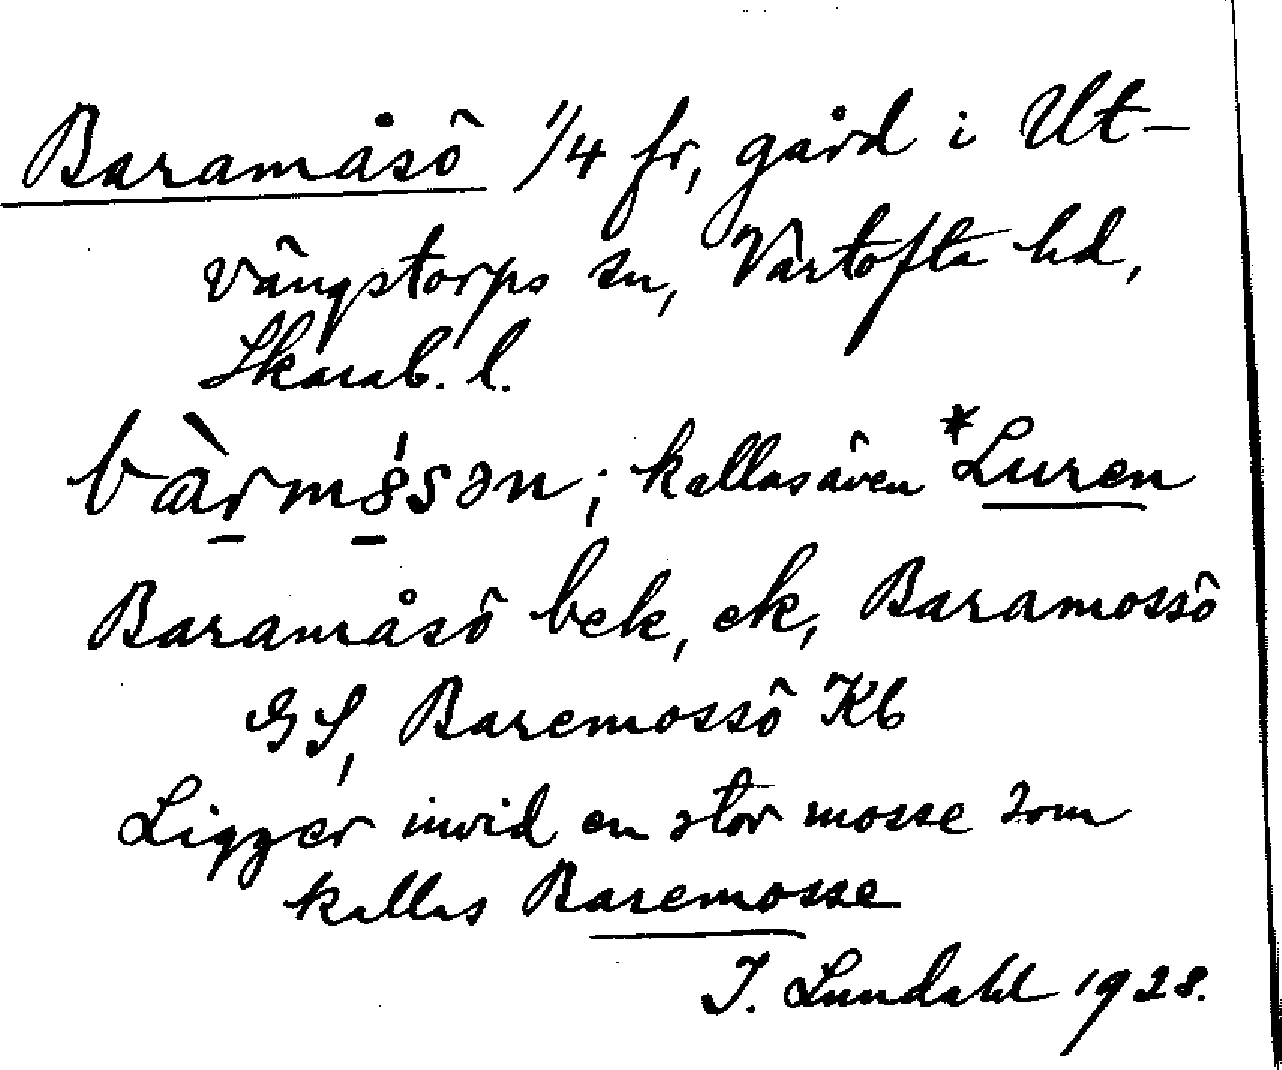 Baramåsö 1/4 fr, gård i Ut-
vängstorps sn, Vartofta hd,
Skarab. l.
bàrmǿsən; kallas även *Luren
Baramåsö bek, ek, Baramossö
GS, Baremossö Kb
Ligger invid en stor mosse som
kallas Baremosse
I. Lundahl 1928.